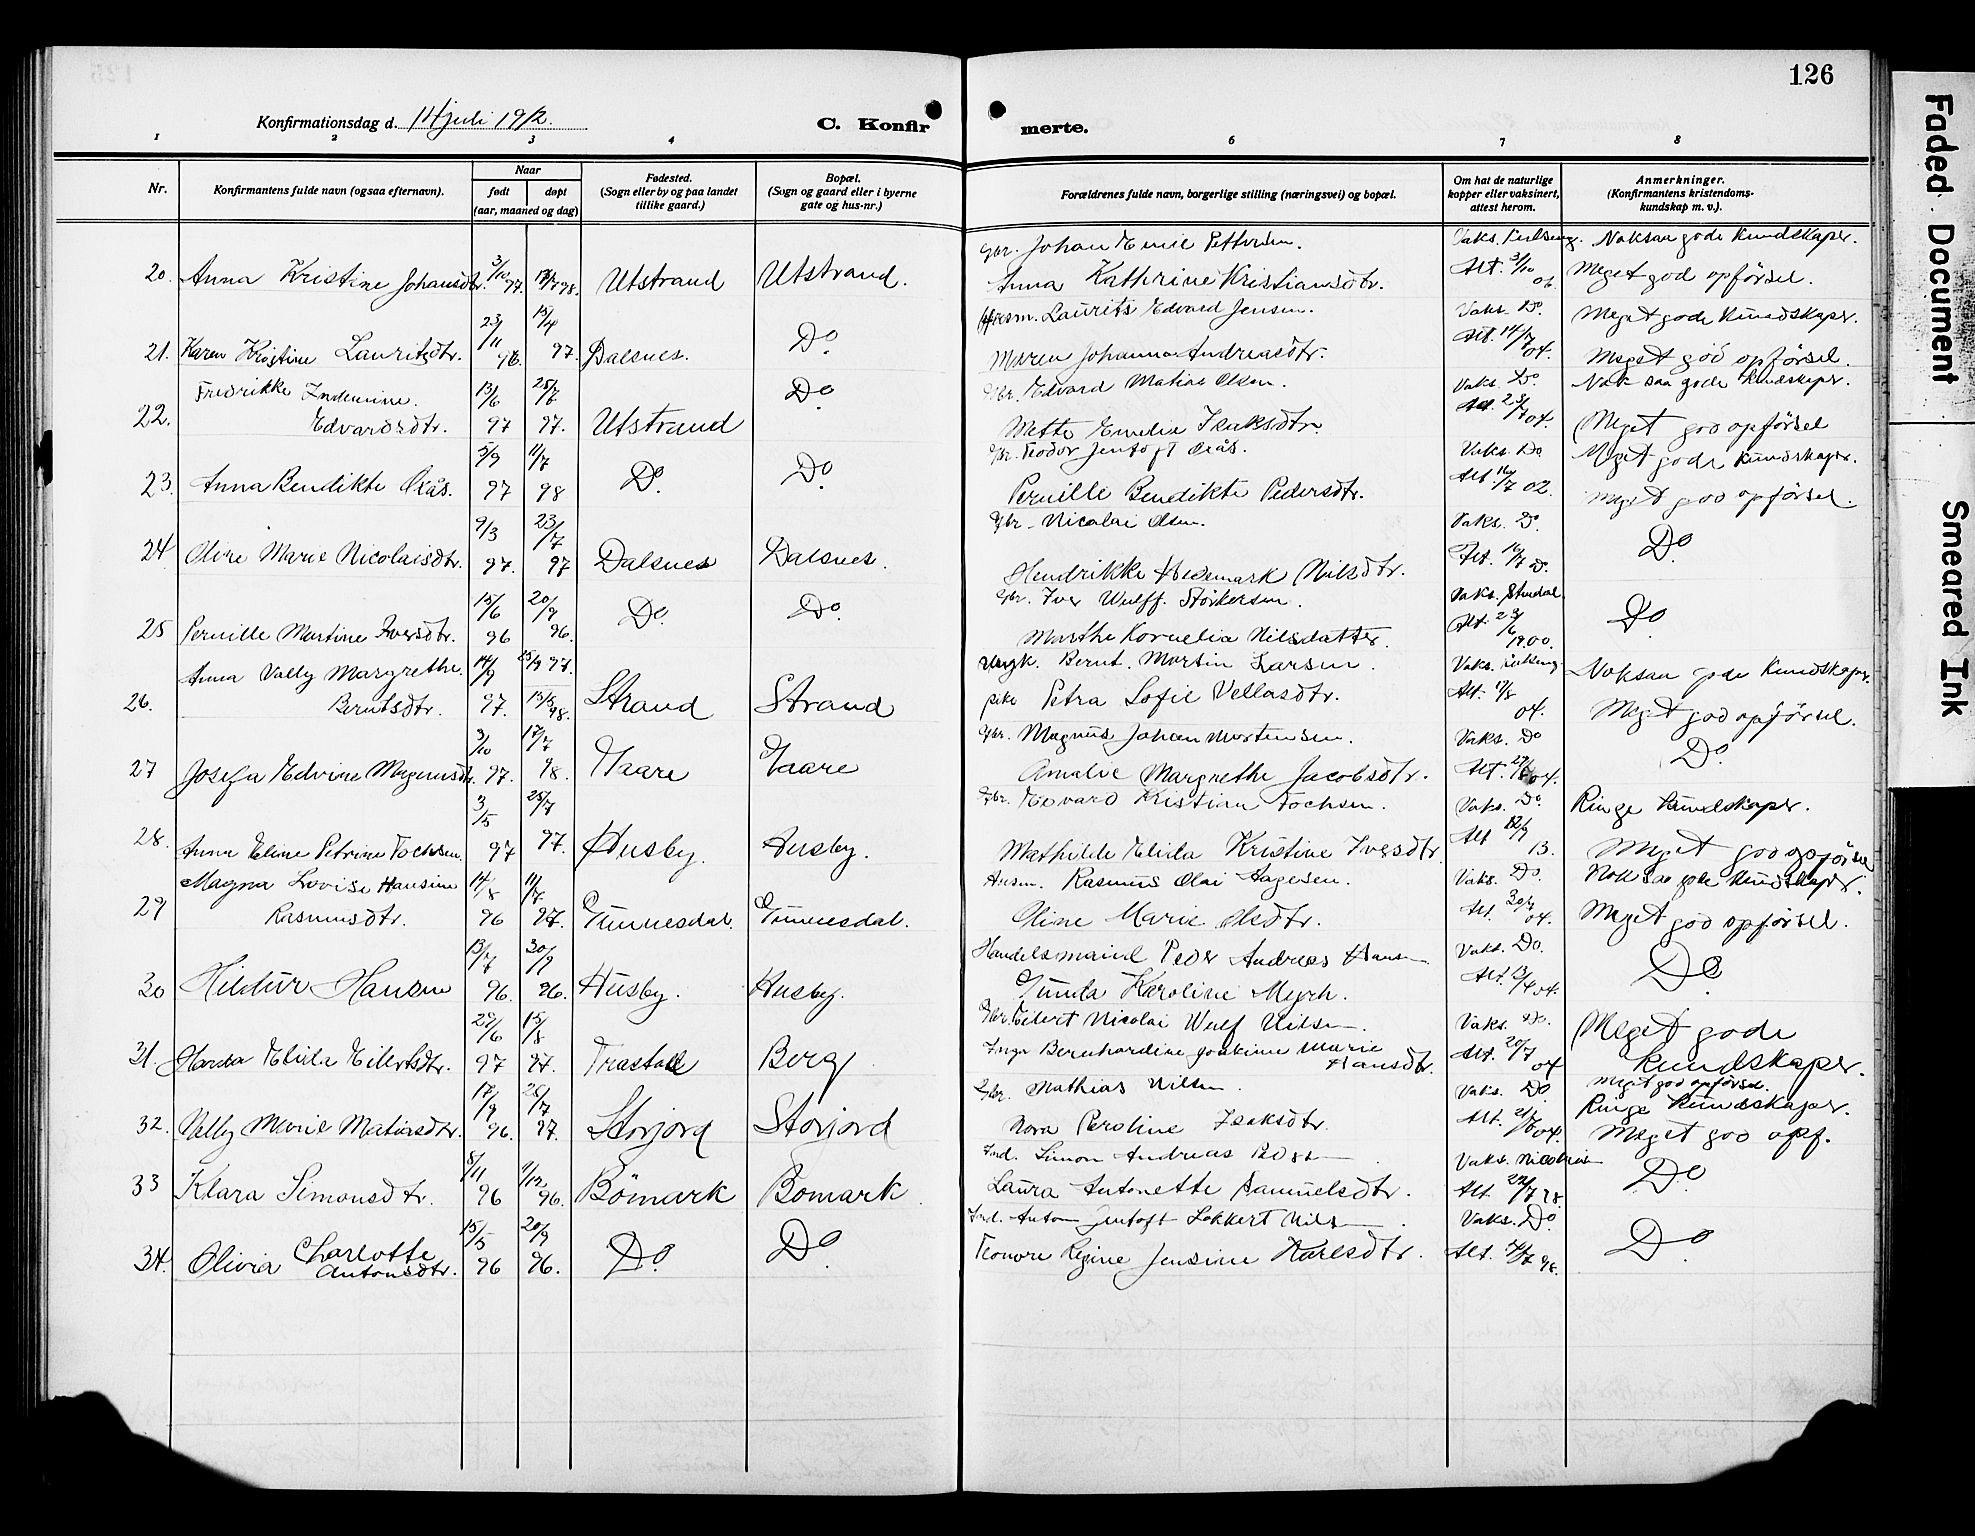 126
Konfirmationsdag d. 14 juli 1912.
C. Konfirmerte.
1 2 3 4 6 7 8
Nr.
Konfirmantens fulde navn (ogsaa efternavn).
Naar
født døpt
(aar, maaned og dag)
Fødested.
(Sogn eller by og paa landet
tillike gaard.)
Bopæl.
(Sogn og gaard eller i byerne
gate og hus-nr.)
Forældrenes fulde navn, borgerlige stilling (næringsvei) og bopæl.
Om hat de naturlige
kopper eller vaksinert,
attest herom.
Anmerkninger.
(Konfirmantens kristendoms-
kundskap m. v.).
Gbr. Johan Emil Pettersen. Noksaa gode kundskaper.
20. Anna Kristine Johansdtr. 3/10 97. Utstrand Utstrand. Anna Kathrine Kristiansdtr. Att. 3/10 06. Meget god opførsel.
23/11 15/4 Do Laurits Edvard Jensen. Vaks. Do. Meget gode kundskaper.
21. Karen Kristine Lauritsdtr. 96. 97. Dalsnes. Maren Johanna Andreasdtr. Att. 14/7 04. Meget god opførsel.
Fredrikke Indemine. 13/6 25/7 Do Gbr. Edvard Matias Olsen. Vaks. Do. Nok saa gode kundskaper.
22. Edvardsdtr. 97 97. Utstrand Mette Emelia Isaksdtr. Att. 23/7 04. Meget god opførsel
5/9 11/7 Do Gbr. Teodor Jentoft Oxås. Vaks. Do Meget gode kundskaper.
23. Anna Bendikte Oxås. 97 98 Do. Pernille Bendikte Pedersdtr. Att. 16/7 02. Meget god opførsel.
9/3 23/7 Gbr. Nicolai Olsen. Vaks. Do. Do
24 Olive Marie Nicolaisdtr. 97. 97 Dalsnes Dalsnes. Hendrikke Hedemark Nilsdtr. Att. 16/7 Do.
15/6 20/9 Do. Do. Gbr. Iver Wulff Størkersen. Vaks. Do
25 Pernille Martine Iversdtr. 96 96. Marthe Kornelia Nilsdatter. Att. 23/6 1900.
Anna Valby Margrethe. 14/9 25/9 97. Ungk. Bernt Martin Larsen. Vaks. Noksaa gode kundskaper.
26. Berntsdtr. 97. 15/5 98. Strand Strand pike Petra Sofie Vellasdtr. Att. 17/8 04. Meget god opførsel.
3/10 17/7 Gbr. Magnus Johan Mortensen. Vaks. Do Do.
27 Josefa Edvine Magnusdtr. 97. 98. Gaare Gaare Amalie Margrethe Jacobsdtr. Att. 04.
3/5 25/7 Gbr. Edvard Kristian Tochsen. Vaks. Do. Ringe kundskaper.
28. Anna Eline Petrine Tochsen. 97 97. Husby. Husby. Mathilde Elida Kristine Iversdtr. Att 12/9 13. Meget god opførsel
Magna Lovise Hansine 14/8 Husm. Rasmus Olai Aagesen. Vaks. Do. Nok saa gode kundskaper.
29 Rasmusdtr. 96 97. Tunnesdal. Tunnesdal. Oline Marie Olsdtr. Att. 30/7 04. Meget god opførsel.
13/7 30/9 Handelsmand Peder Andreas Hansen Vaks. Do. Do
30 Hildur Hansen 96. 96. Husby. Husby. Gunda Karoline Myrh. Att. 23/4 04.
29/6 15/8 Gbr. Eilert Nicolai Wulf Nilsen. Vaks. Do. Meget gode
31. Harda Elida Eilertsdtr. 97 97. Trastad Berg Inga Bernhardine Joakime Marie Hansdtr. Att. 20/7 04 kundskaper.
17/9 26/7 Gbr. Mathias Nilsen. Vaks. Do Meget god opførsel. Ringe kundskaper.
32. Valby Marie Matiasdtr. 96. 97. Storjord Storjord Nora Peroline Isaksdtr. Att. 21/6 04. Meget god opf.
8/11 11/12 Ind. Simon Andreas Vaks. Do
33 Klara Simonsdtr. 96 96. Bømark Bomark Laura Antonette Samuelsdtr. Att. 22/7 98.
15/5 20/9 Do Ind. Anton Jentoft Lokkert Nils Vaks. Do. Do
34. Olivia Charlotte Antonsdtr. 96 96. Do Teonore Regine Jensine Karlsdtr. Att. 98.
Faded Document
Smeared Ink